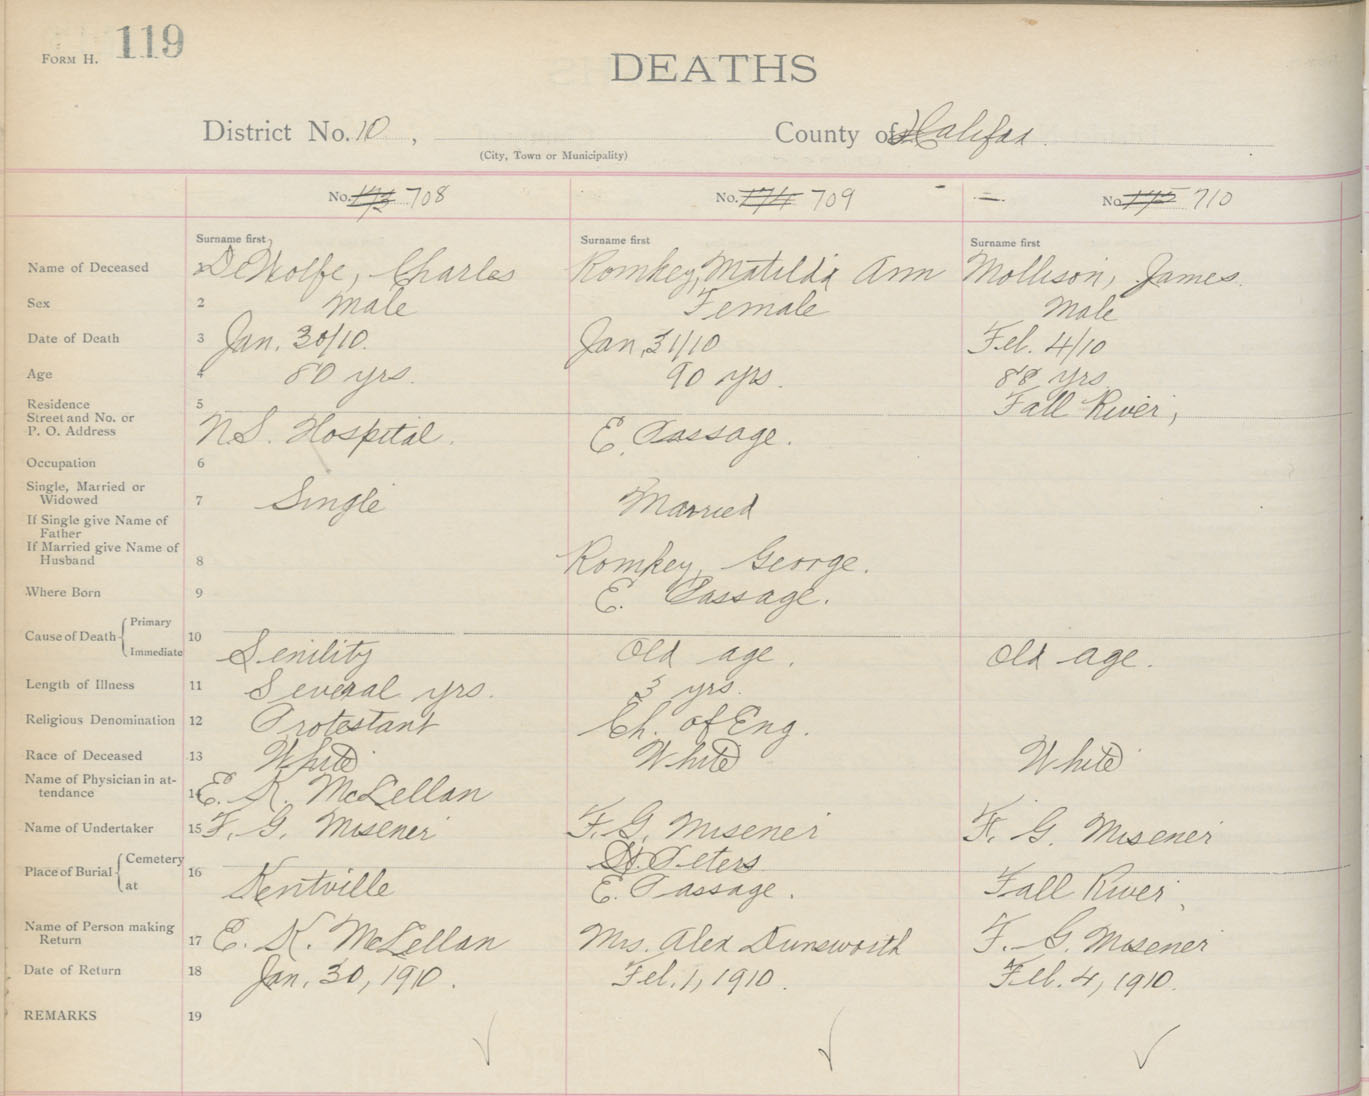 FORM H. 119
DEATHS
District No. 10 , County of Halifax
(City, Town or Municipality)
No. 708 No. 174 709 No. 175 710
Surname first Surname first Surname first
Name of Deceased 1 DeWolfe, Charles Romkey, Matilda Ann Mollison, James
Sex 2 Male Female Male
Date of Death 3 Jan. 30/10. Jan. 31/10 Feb. 4/10
Age 4 80 yrs. 90 yrs. 88 yrs
Residence 5 Fall River,
Street and No. or
P. O. Address N.S. Hospital. E. Passage.
Occupation 6
Single, Married or
Widowed 7 Single Married
If Single give Name of
Father
If Married give Name of
Husband 8 Romkey, George.
Where Born 9 E. Passage.
Cause of Death { Primary
Immediate 10 Senility Old age. Old age.
Length of Illness 11 Several yrs. 3 yrs.
Religious Denomination 12 Protestant Ch. of Eng.
Race of Deceased 13 White White White
Name of Physician in at-
tendance 14 E. K. McLellan
Name of Undertaker 15 F. G. Misener F. G. Misener F. G. Misener
Place of Burial { Cemetery 16 St. Peters
at Kentville E. Passage. Fall River,
Name of Person making
Return 17 E. K. McLellan Mrs. Alex Dunsworth F. G. Misener
Date of Return 18 Jan. 30, 1910. Feb. 1, 1910. Feb. 4, 1910.
REMARKS 19